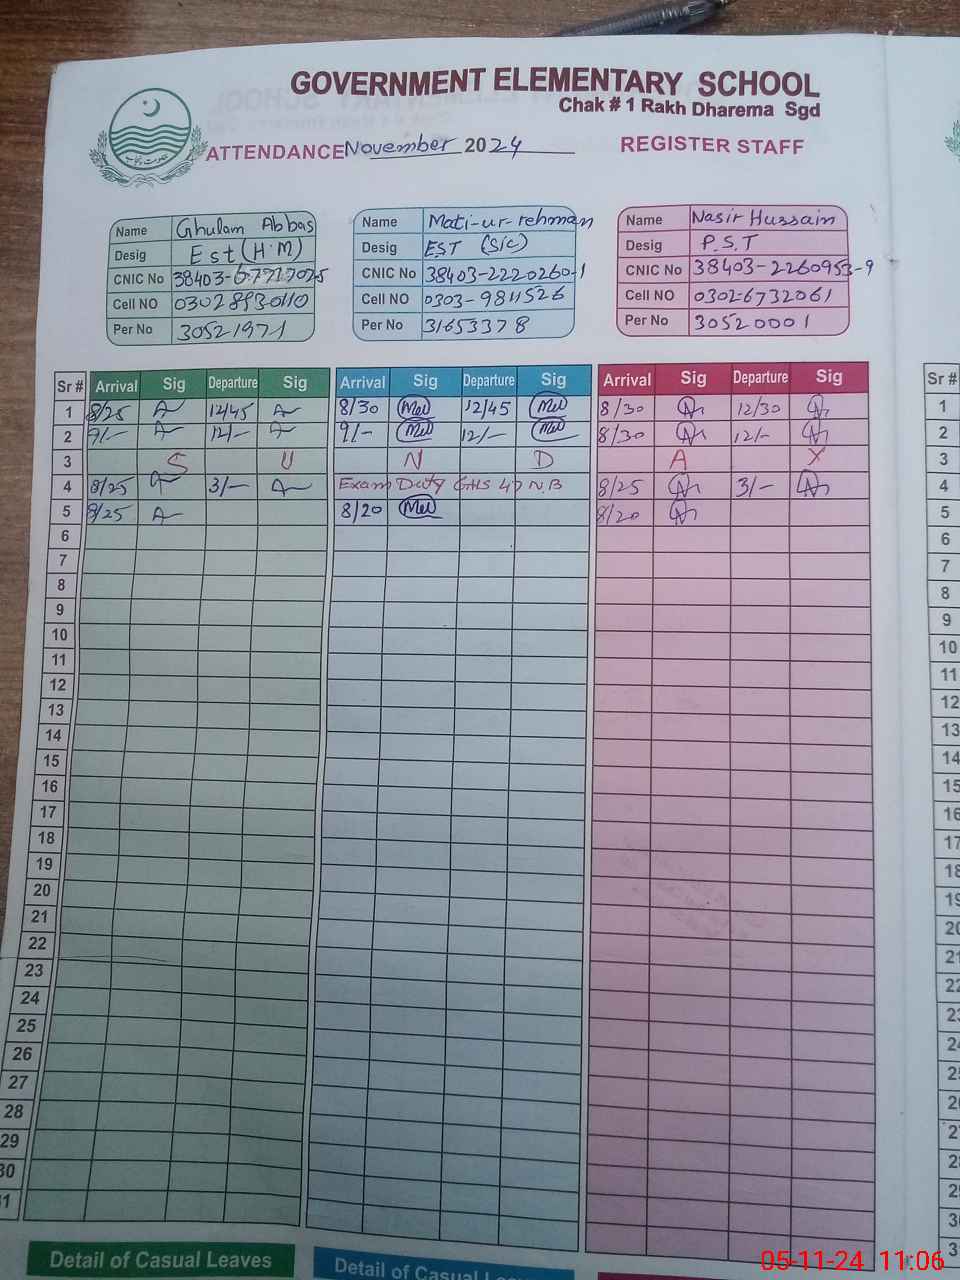 GOVERNMENT ELEMENTARY SCHOOL
Chak # 1 Rakh Dharema Sgd
ATTENDANCE November 2024 REGISTER STAFF
Name Ghulam Abbas
Desig Est (H.M)
CNIC No 38403-
Cell NO 03028930110
Per No 30521971
Name Mati-ur-rehman
Desig EST (S/c)
CNIC No 38403-2220260-1
Cell NO 0303-9811526
Per No 31653378
Name Nasir Hussain
Desig P.S.T
CNIC No 38403-2260953-9
Cell NO 0302-6732061
Per No 30520001
Sr # Arrival Sig Departure Sig Arrival Sig Departure Sig Arrival Sig Departure Sig Sr #
1 8/25 12/45 8/30 12/45 8/30 12/30 1
2 9/- 12/- 9/- 12/- 8/30 12/- 2
3 S U N D A Y 3
4 8/25 3/- Exam Duty GHS 47 N.B 8/25 3/- 4
5 8/25 8/20 8/20 5
6 6
7 7
8 8
9 9
10 10
11 11
12 12
13 13
14 14
15 15
16 16
17 17
18 18
19 19
20 20
21 21
22
23
24
25
26
27
28
29
30
Detail of Casual Leaves
Detail of Casual
05-11-24 11:06